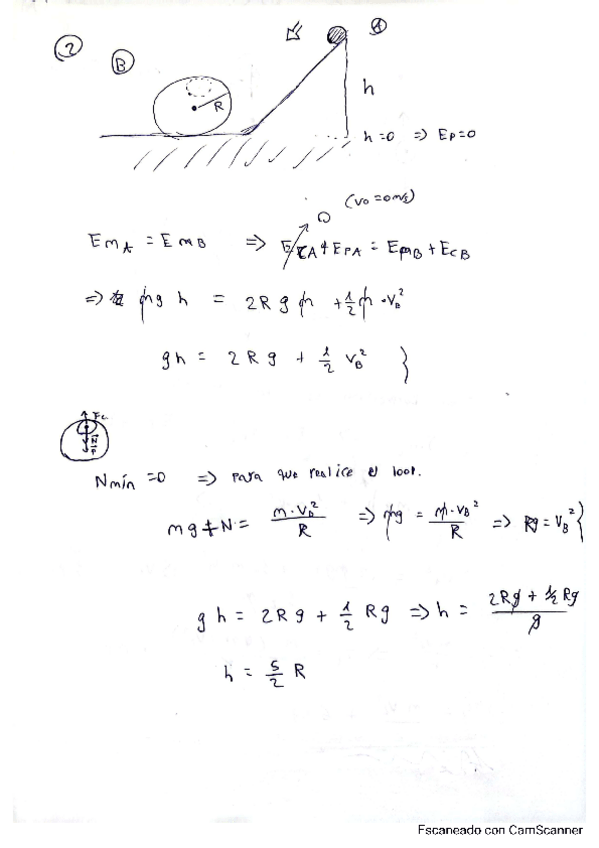 ② Ⓑ Ⓐ
h
R
h=0 ⇒ Ep=0
(v0=0m/s)
0
EmA = EmB ⇒ EcA + EpA = EpB + EcB
⇒ mg h = 2R g m + 1/2 m · vB²
gh = 2Rg + 1/2 vB² }
Fc
N
P
Nmín =0 ⇒ para que realice el loop.
mg + N = m·vB²/R ⇒ mg = m·vB²/R ⇒ Rg = vB² }
gh = 2Rg + 1/2 Rg ⇒ h = 2Rg + 1/2 Rg / g
h = 5/2 R
Escaneado con CamScanner